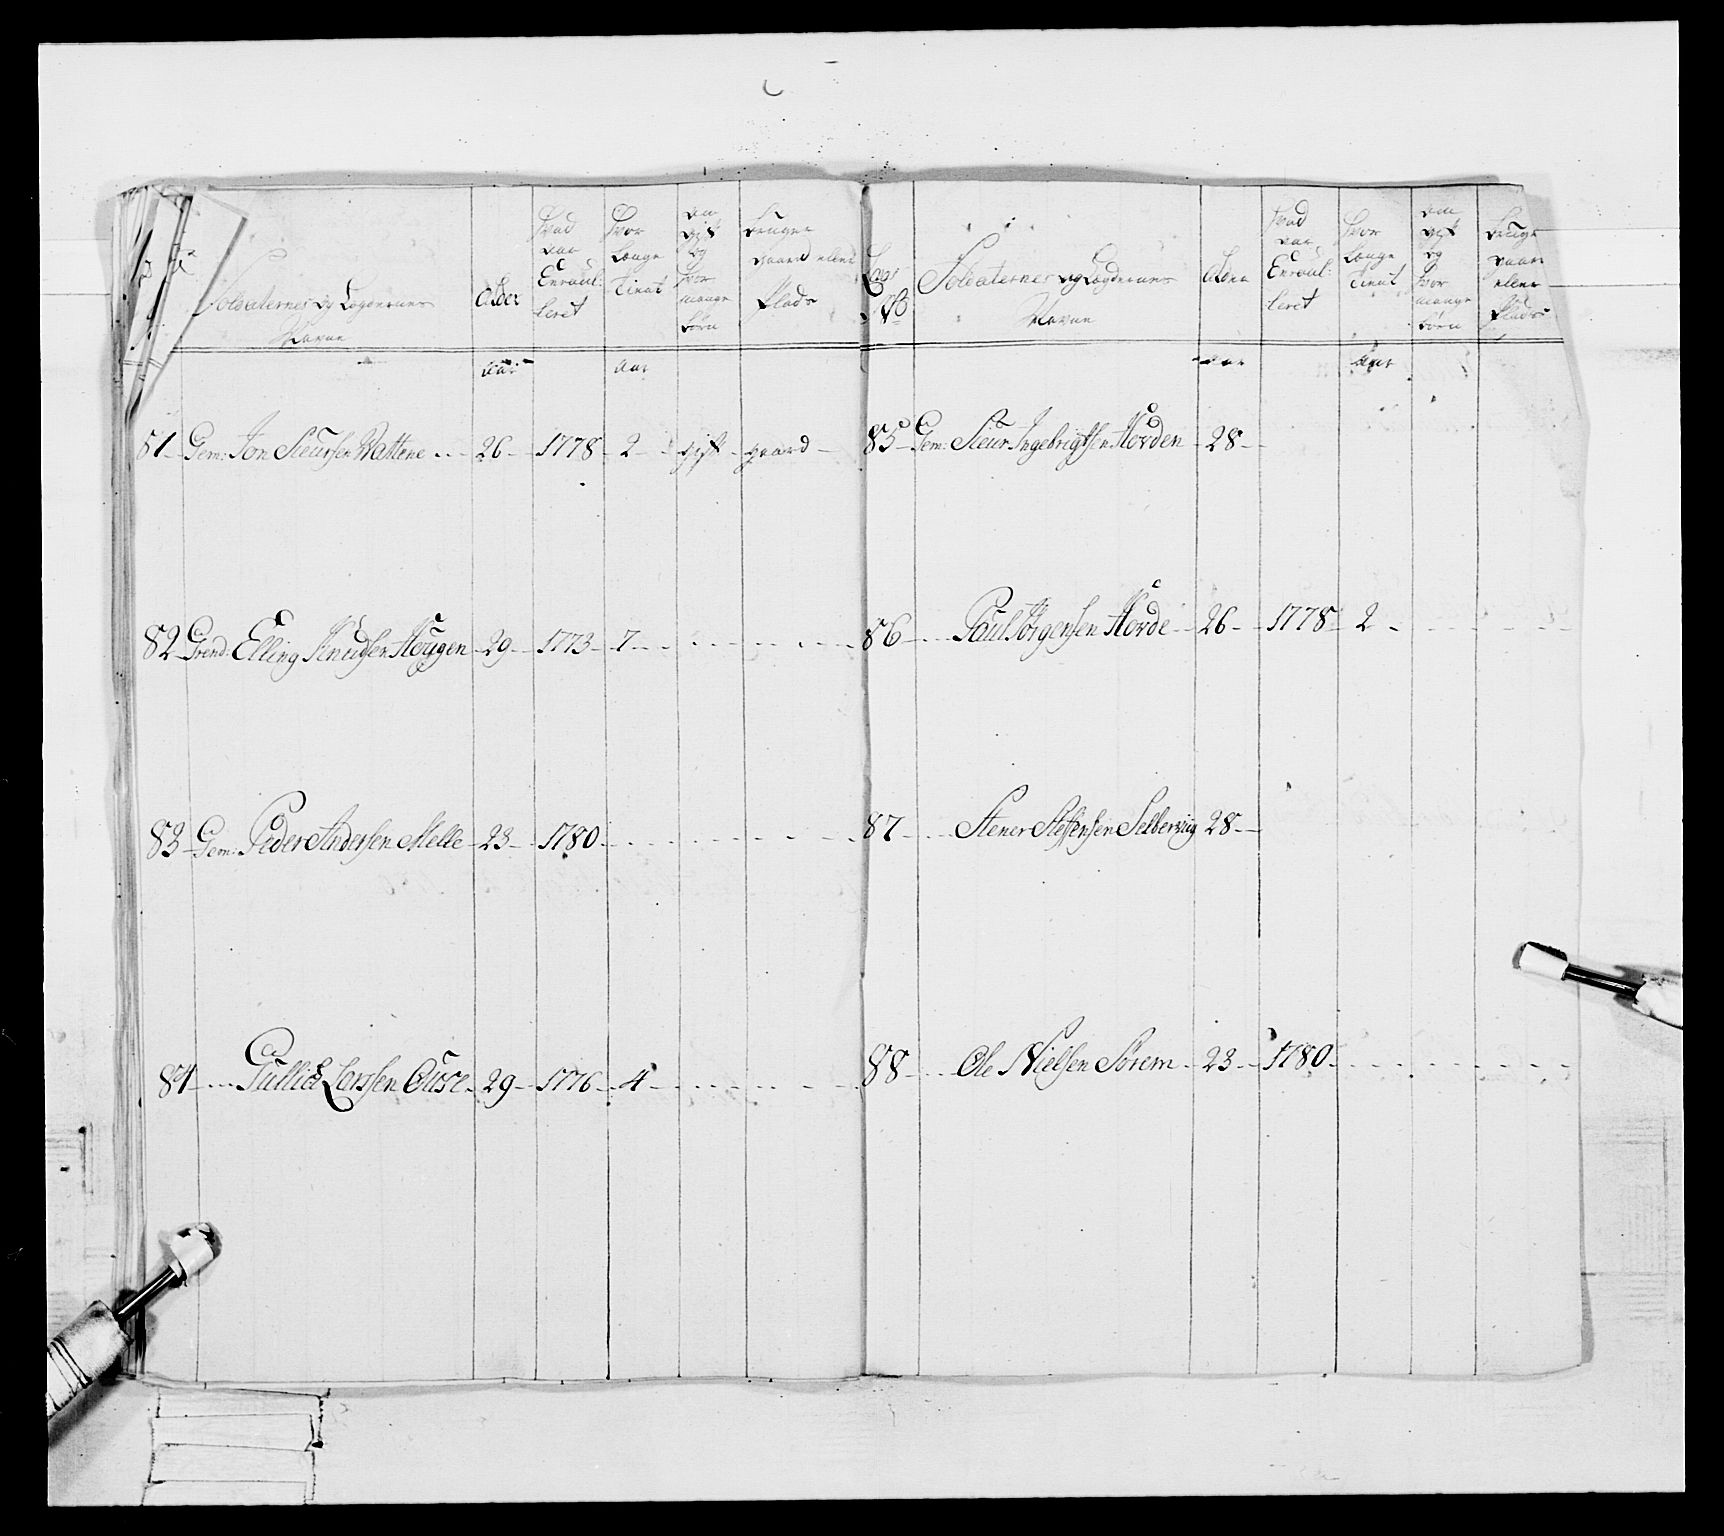 Soldaternes og Lægdernes
Navne
Alder
Hvad
aar
Enroul:
leret
Hvor
Længe
Tient
om
gift
og
hvor
mange
børn
bruger
gaard eller
Plads
aar
aar
51 Gem: Jon Siursen Wattene 26 1778 2 gift gaard
82 Grend: Elling Knudsen Høygen 29 1773 7
83 Gem: Peder Andersen Melle 23 1780
84 Gullick Larssen Quse 29 1776 4
Læg
No
Soldaternes og Lægdernes
Navne
Alder
Hvad
aar
Enroul:
leret
Hvor
Længe
Tient
om
gift
og
hvor
mange
børn
bruge
gaar
eller
Plads
aar
aar
85 Gem: Siur Ingebrigtsen Hovden 28
86 Poul Jørgensen Hovde 26 1778 2
87 Stener Steffensen Selbervig 28
88 Ole Nielsen Sørem 23 1780